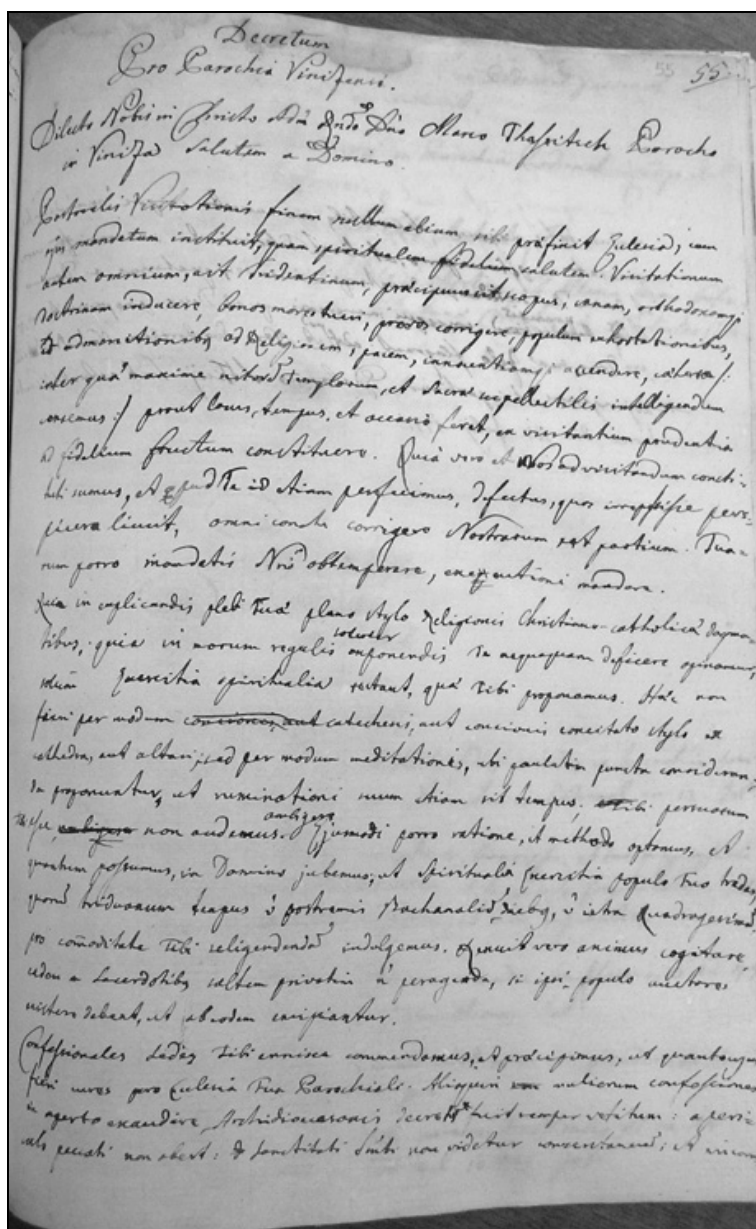 Decretum
55 55
Pro Parochia Vinizensi.
Dilecto Nobis in Christo Adm Rndo Dno Marco Parocho
in Viniza Salutem a Domino.
Pastoralis Visitationis finem nullum alium sibi præfixit Ecclesia, cum
ejus mandatum instituit, quam spiritualem fidelium salutem. Visitationum
autem omnium, ait Tridentinum, præcipuus sit scopus, sanam, orthodoxamq
doctrinam inducere, bonos mores tueri, pravos corrigere, populum exhortationibus,
et admonitionibq ad Religionem, pacem, innocentiamq accendere, cætera /:
inter quæ maxime nitorem Templorum, et Sacræ supellectilis intelligendum
censemus :/ prout locus, tempus, et occasio feret, ex visitantium prudentia
ad fidelium fructum constituere. Quia vero et Nos ad visitandum consti-
tuti sumus, et apud Te id etiam perficimus, defectus, quos irrepsisse pers-
picere licuit, omni conatu corrigere Nostrarum est partium. Tua-
rum porro mandatis Nris obtemperare, executioni mandare.
Quia in explicandis plebi Tuæ plano stylo Religionis Christiano-catholicæ dogma-
tibus, quia in morum regulis exponendis Te nequaquam deficere opinamur,
Exercitia spiritualia restant, quæ Tibi proponamus. Hæc non
fieri per modum concionis, aut catechesis, aut concionis concitato stylo ex
cathedra, aut altari; sed per modum meditationis, ubi paulatim puncta consideran-
da proponuntur, ut ruminationi suum etiam sit tempus; Tibi persuasum
esse non audemus. ambigere Ejusmodi porro ratione, et methodo optamus, et
quantum possumus, in Domino jubemus, ut Spiritualia Exercitia populo Tuo tradas,
quorum triduanum tempus postremis Bachanaliorum diebq, intra Quadragesimam,
pro comoditate Tibi seligendum indulgemus. Renuit vero animus cogitare,
eadem a Sacerdotibq saltem privatim peragenda, si ipsi populo
debeant, ut ab eodem excipiantur.
Confessionales Sedes Tibi enixe commendamus, et præcipimus, ut quantocyus
fieri cures pro Ecclesia Tua Parochiali. mulierum confessiones
in aperto exaudire, Archidioecesanis decretis fuit semper vetitum: a peri-
culo peccati non abest: et Sanctitati Smti non videtur consentaneum; et